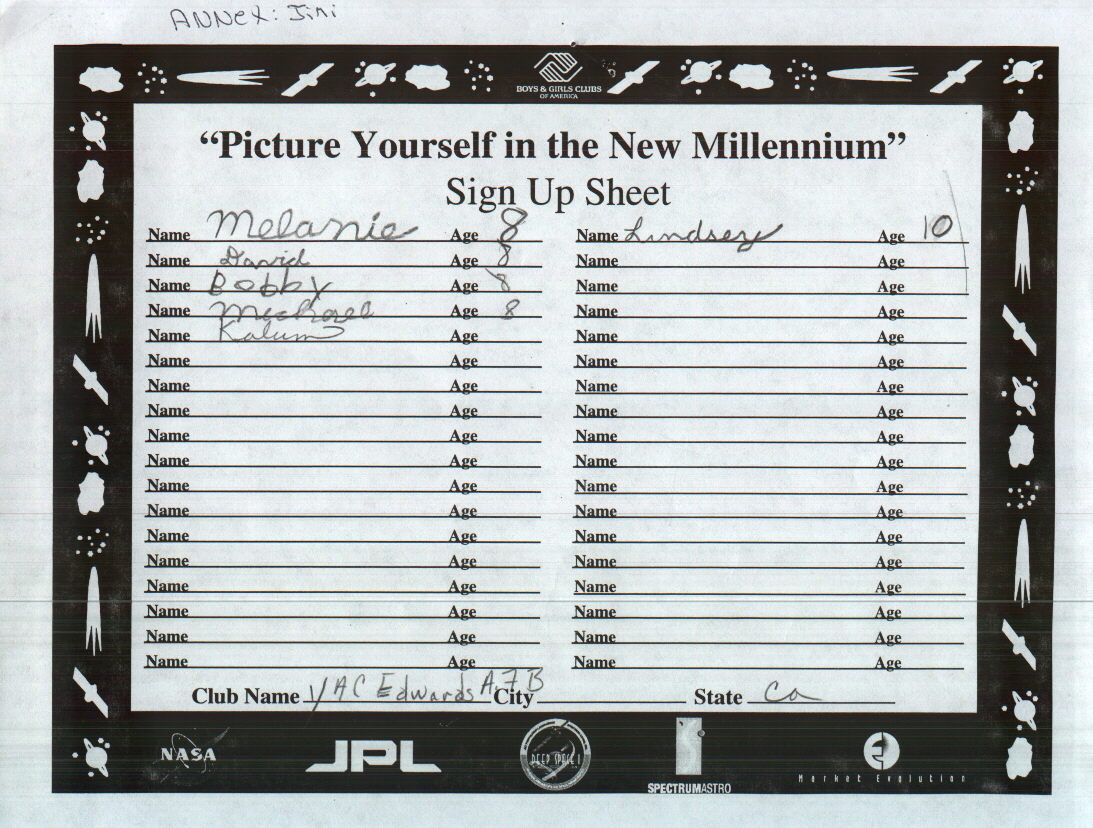 ANNEX: Jimi
BOYS & GIRLS CLUBS
OF AMERICA
“Picture Yourself in the New Millennium”
Sign Up Sheet
Name Melanie Age 8 Name Lindsey Age 10
Name David Age 8 Name Age
Name Bobby Age 8 Name Age
Name Michael Age 8 Name Age
Name Kalum Age Name Age
Name Age Name Age
Name Age Name Age
Name Age Name Age
Name Age Name Age
Name Age Name Age
Name Age Name Age
Name Age Name Age
Name Age Name Age
Name Age Name Age
Name Age Name Age
Name Age Name Age
Name Age Name Age
Name Age Name Age
Club Name YAC Edwards AFB City State Ca
NASA JPL DEEP SPACE 1 SPECTRUMASTRO Market Evolution